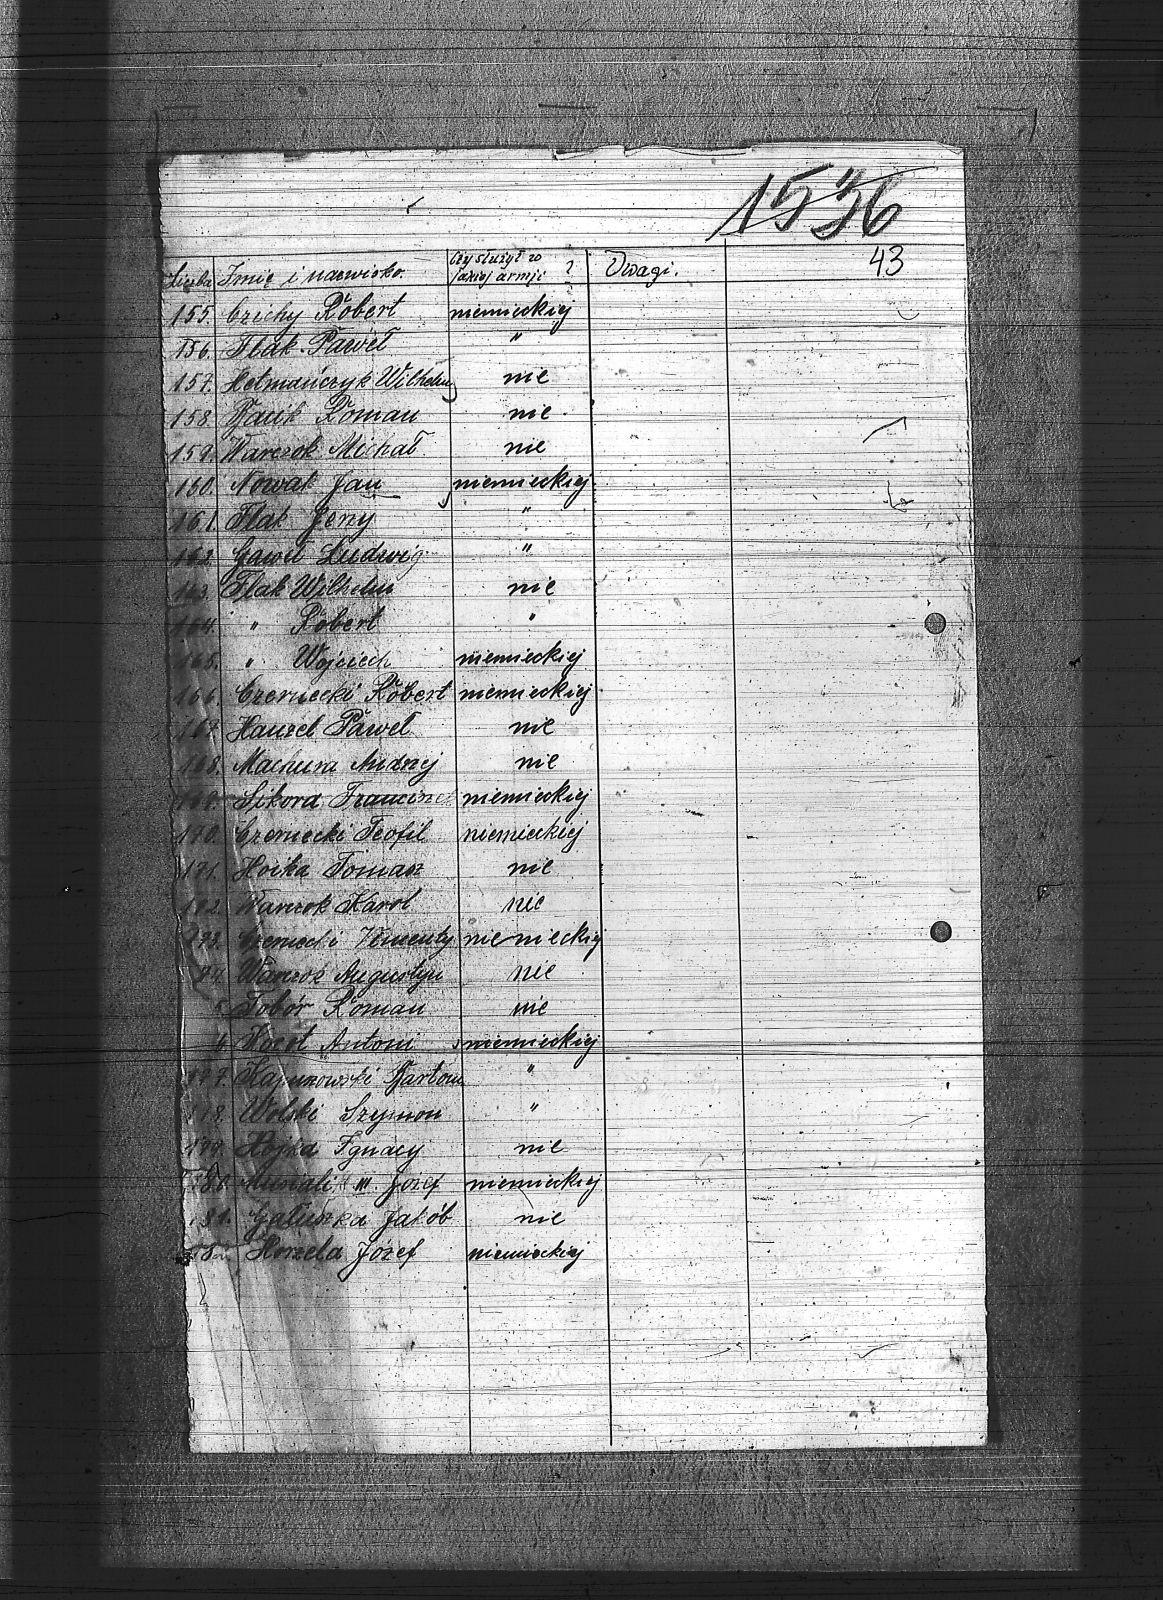 1536
43
Liczba Imię i nazwisko. Czy służył w jakiej armji ? Uwagi.
155. Czichy Robert niemieckiej
156. Flak Paweł "
157. Hetmańczyk Wilhelm nie
158. Roman nie
159. Warczok Michał nie
160. Nowak Jan niemieckiej
161. Flak Jerzy "
162. Gaweł Ludwig "
163. Flak Wilhelm nie
164. " Robert "
165. " Wojciech niemieckiej
166. Czernecki Robert niemieckiej
167. Hanzel Paweł nie
168. Machura Andrzej nie
169. Sikora Franciszek niemieckiej
170. Czernecki Teofil niemieckiej
171. Hoika Tomasz nie
172. Warczok Karol nie
173. Czernecki Wincenty niemieckiej
Warczok Augustyn nie
Tobór Roman nie
Antoni niemieckiej
177. "
178. Wolski Szymon "
179. Hojka Ignacy nie
180. III. Józef niemieckiej
181. Gałuszka Jakób nie
Horzela Józef niemieckiej